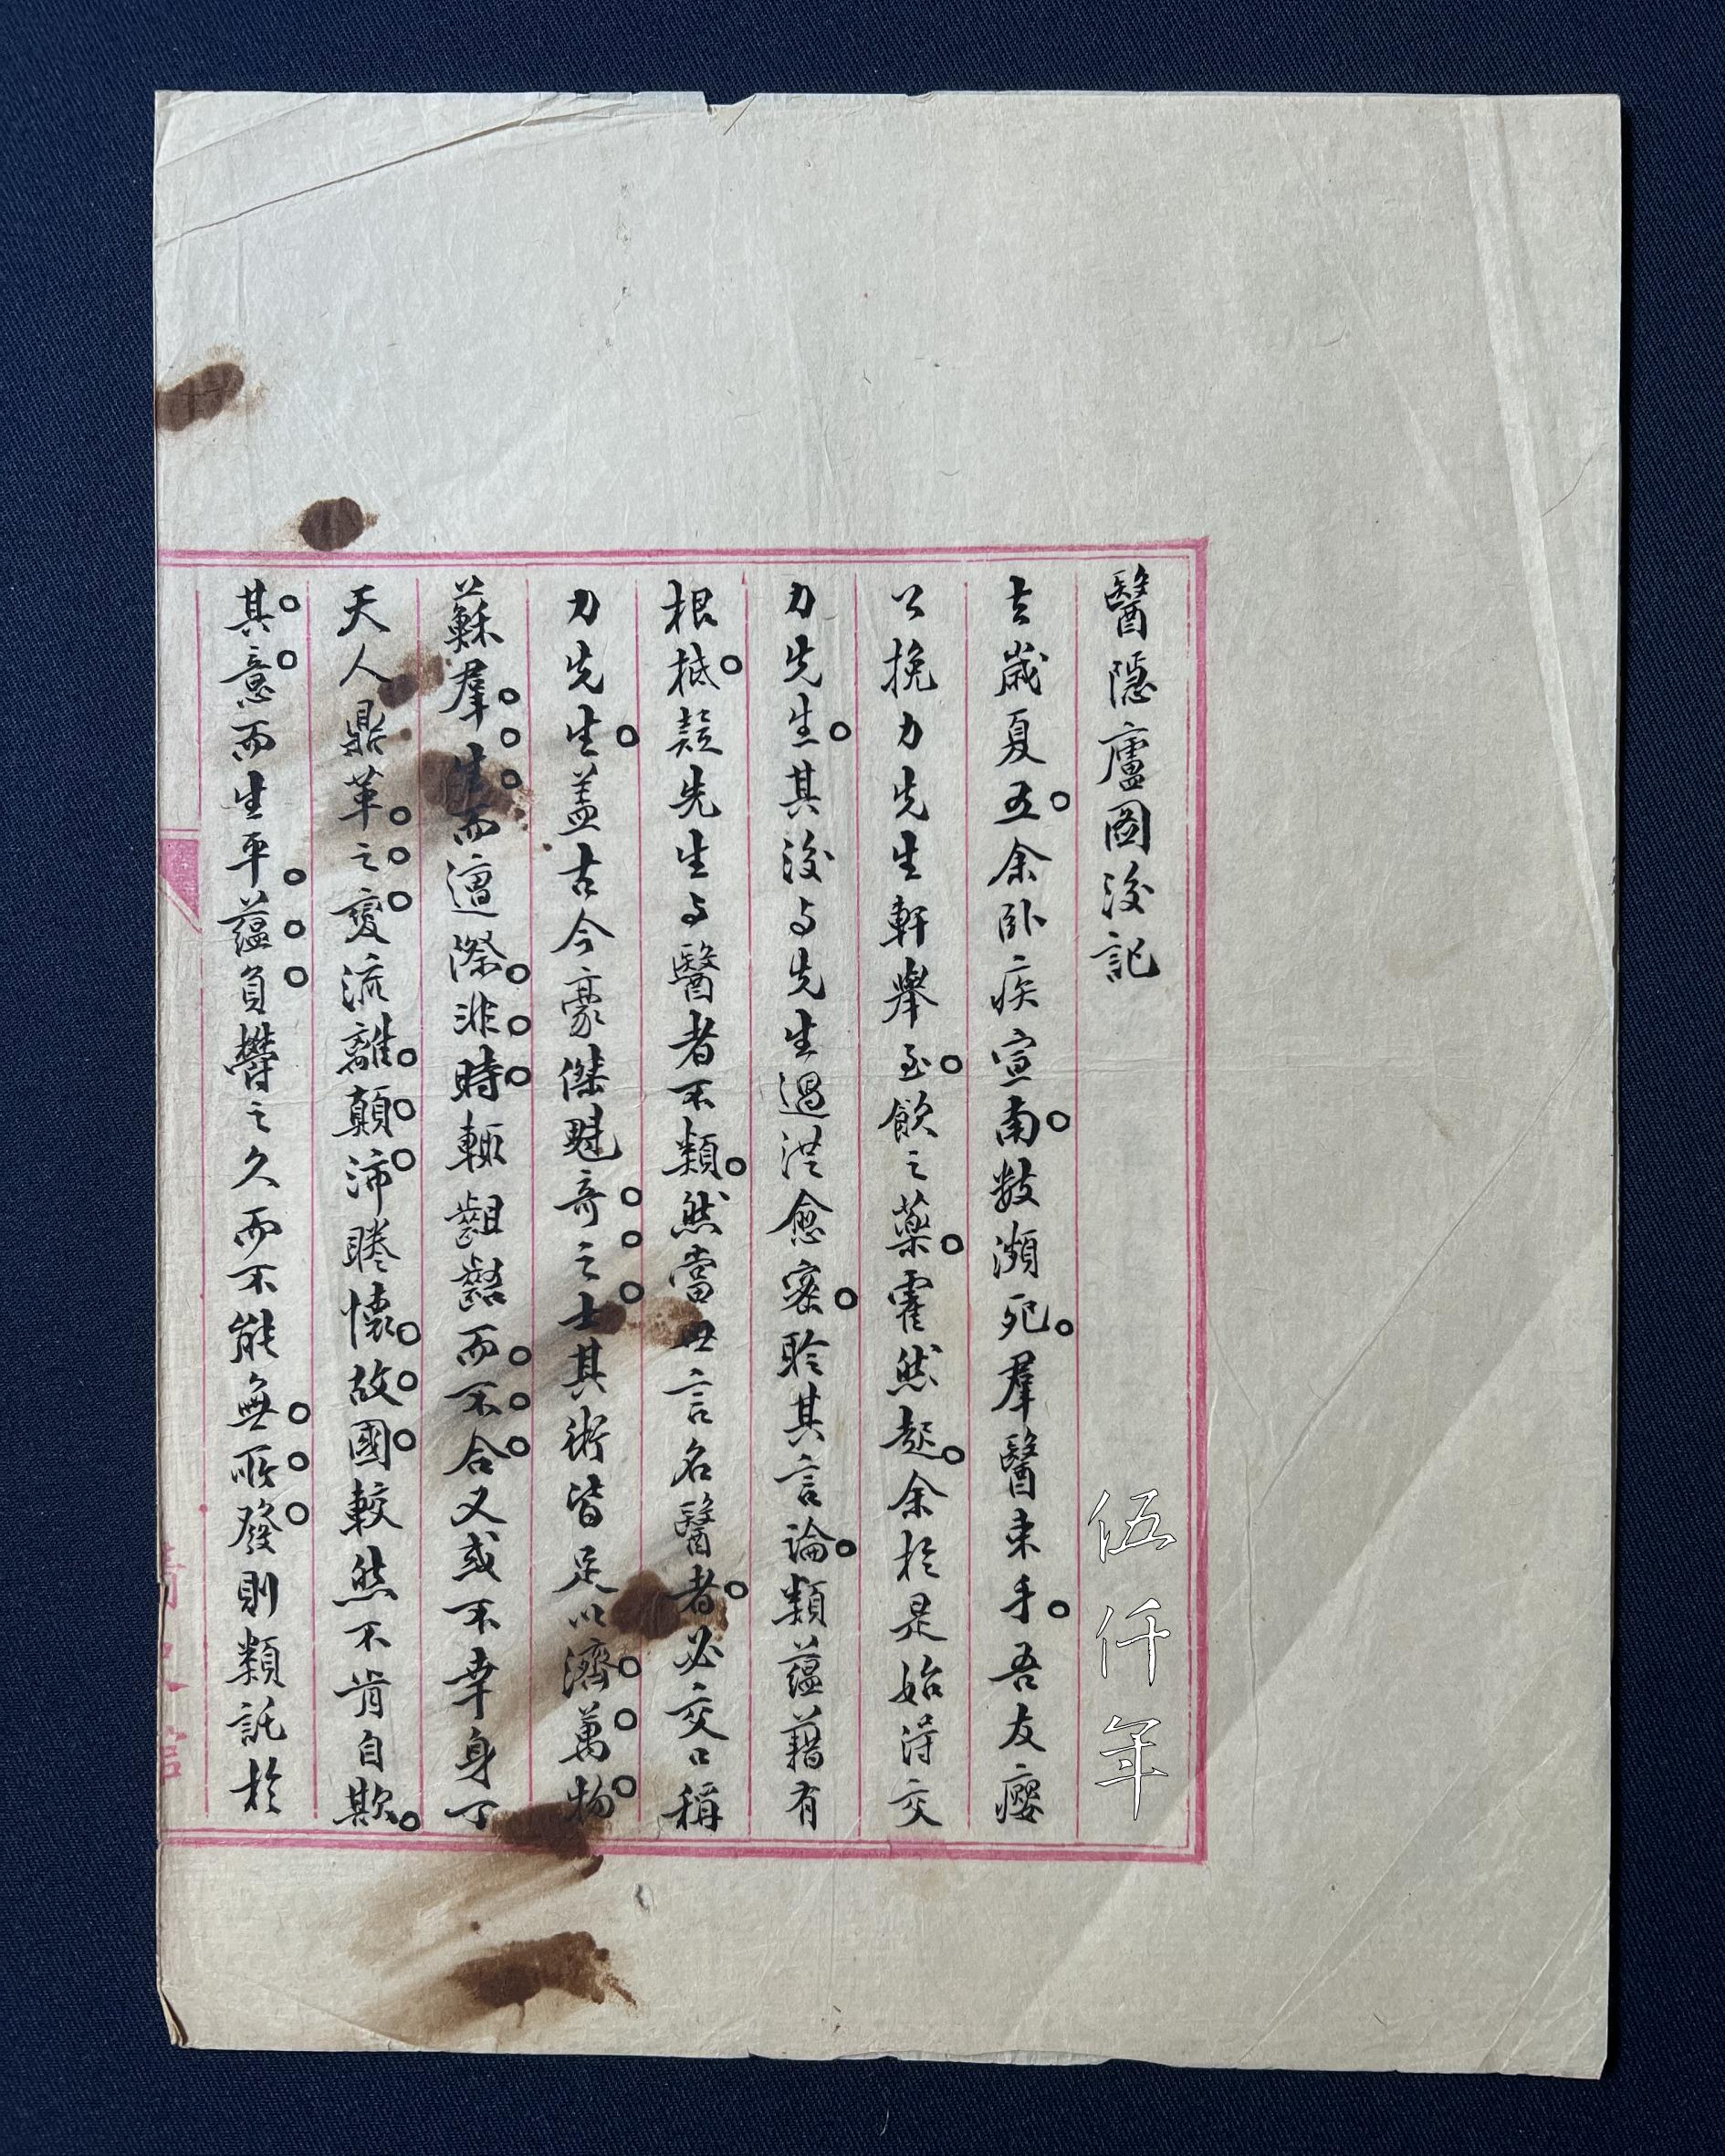 醫隱廬圖後記
去歲夏五余卧疾宣南數瀕死羣醫束手吾友癭
公挽力先生軒舉至飲之藥霍然起余於是始得交
力先生其後与先生過從愈密聆其言論類蘊藉有
根柢疑先生与醫者不類然當世言名醫者必交口稱
力先生蓋古今豪傑魁奇之士其術皆足以濟萬物
蘇羣生而遭際非時輒齟齬而不合又或不幸身丁
天人鼎革之變流離顛沛睠懷故國較然不肯自欺
其意而生平蘊負鬱之久而不能無所發則類託於
伍仟年